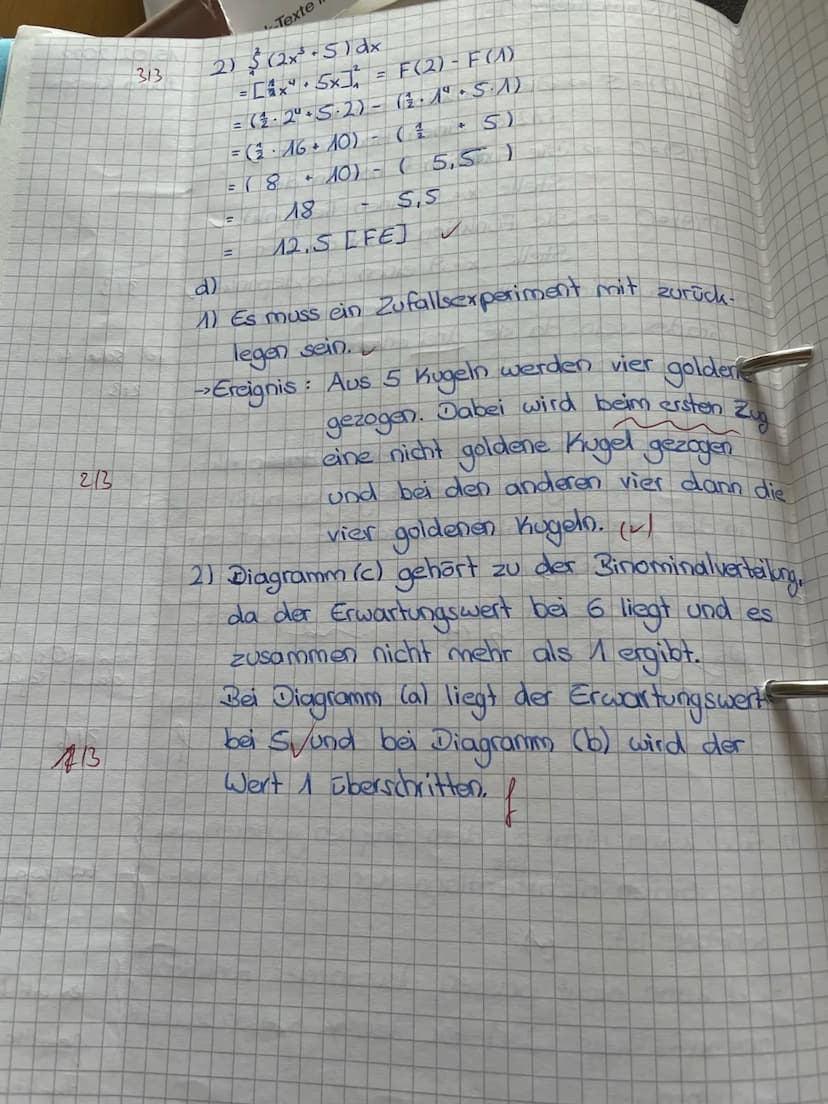 -Texte
3/3
2) ∫₁² (2x³ + 5) dx
= [½x⁴ + 5x]₁² = F(2) - F(1)
= (½ · 2⁴ + 5 · 2) - (½ · 1⁴ + 5 · 1)
= (½ · 16 + 10) - (½ + 5)
= (8 + 10) - (5,5)
= 18 - 5,5
= 12,5 [FE] ✓
d)
1) Es muss ein Zufallsexperiment mit zurück-
legen sein. ✓
→ Ereignis: Aus 5 Kugeln werden vier goldene
gezogen. Dabei wird beim ersten Zug
eine nicht goldene Kugel gezogen
2/3
und bei den anderen vier dann die
vier goldenen Kugeln. (✓)
2) Diagramm (c) gehört zu der Binominalverteilung,
da der Erwartungswert bei 6 liegt und es
zusammen nicht mehr als 1 ergibt.
Bei Diagramm (a) liegt der Erwartungswert
bei 5 ✓ und bei Diagramm (b) wird der
1/3
Wert 1 überschritten. f